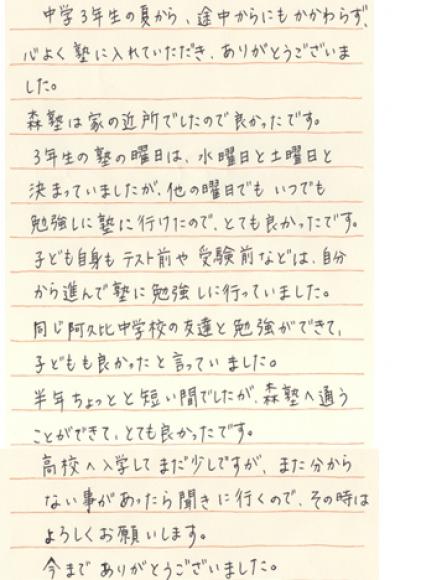 中学3年生の夏から、途中からにもかかわらず、
心よく塾に入れていただき、ありがとうございま
した。
森塾は家の近所でしたので良かったです。
3年生の塾の曜日は、水曜日と土曜日と
決まっていましたが、他の曜日でもいつでも
勉強しに塾に行けたので、とても良かったです。
子ども自身もテスト前や受験前などは、自分
から進んで塾に勉強しに行っていました。
同じ阿久比中学校の友達と勉強ができて、
子どもも良かったと言っていました。
半年ちょっとと短い間でしたが、森塾へ通う
ことができて、とても良かったです。
高校へ入学してまだ少しですが、また分から
ない事があったら聞きに行くので、その時は
よろしくお願いします。
今までありがとうございました。